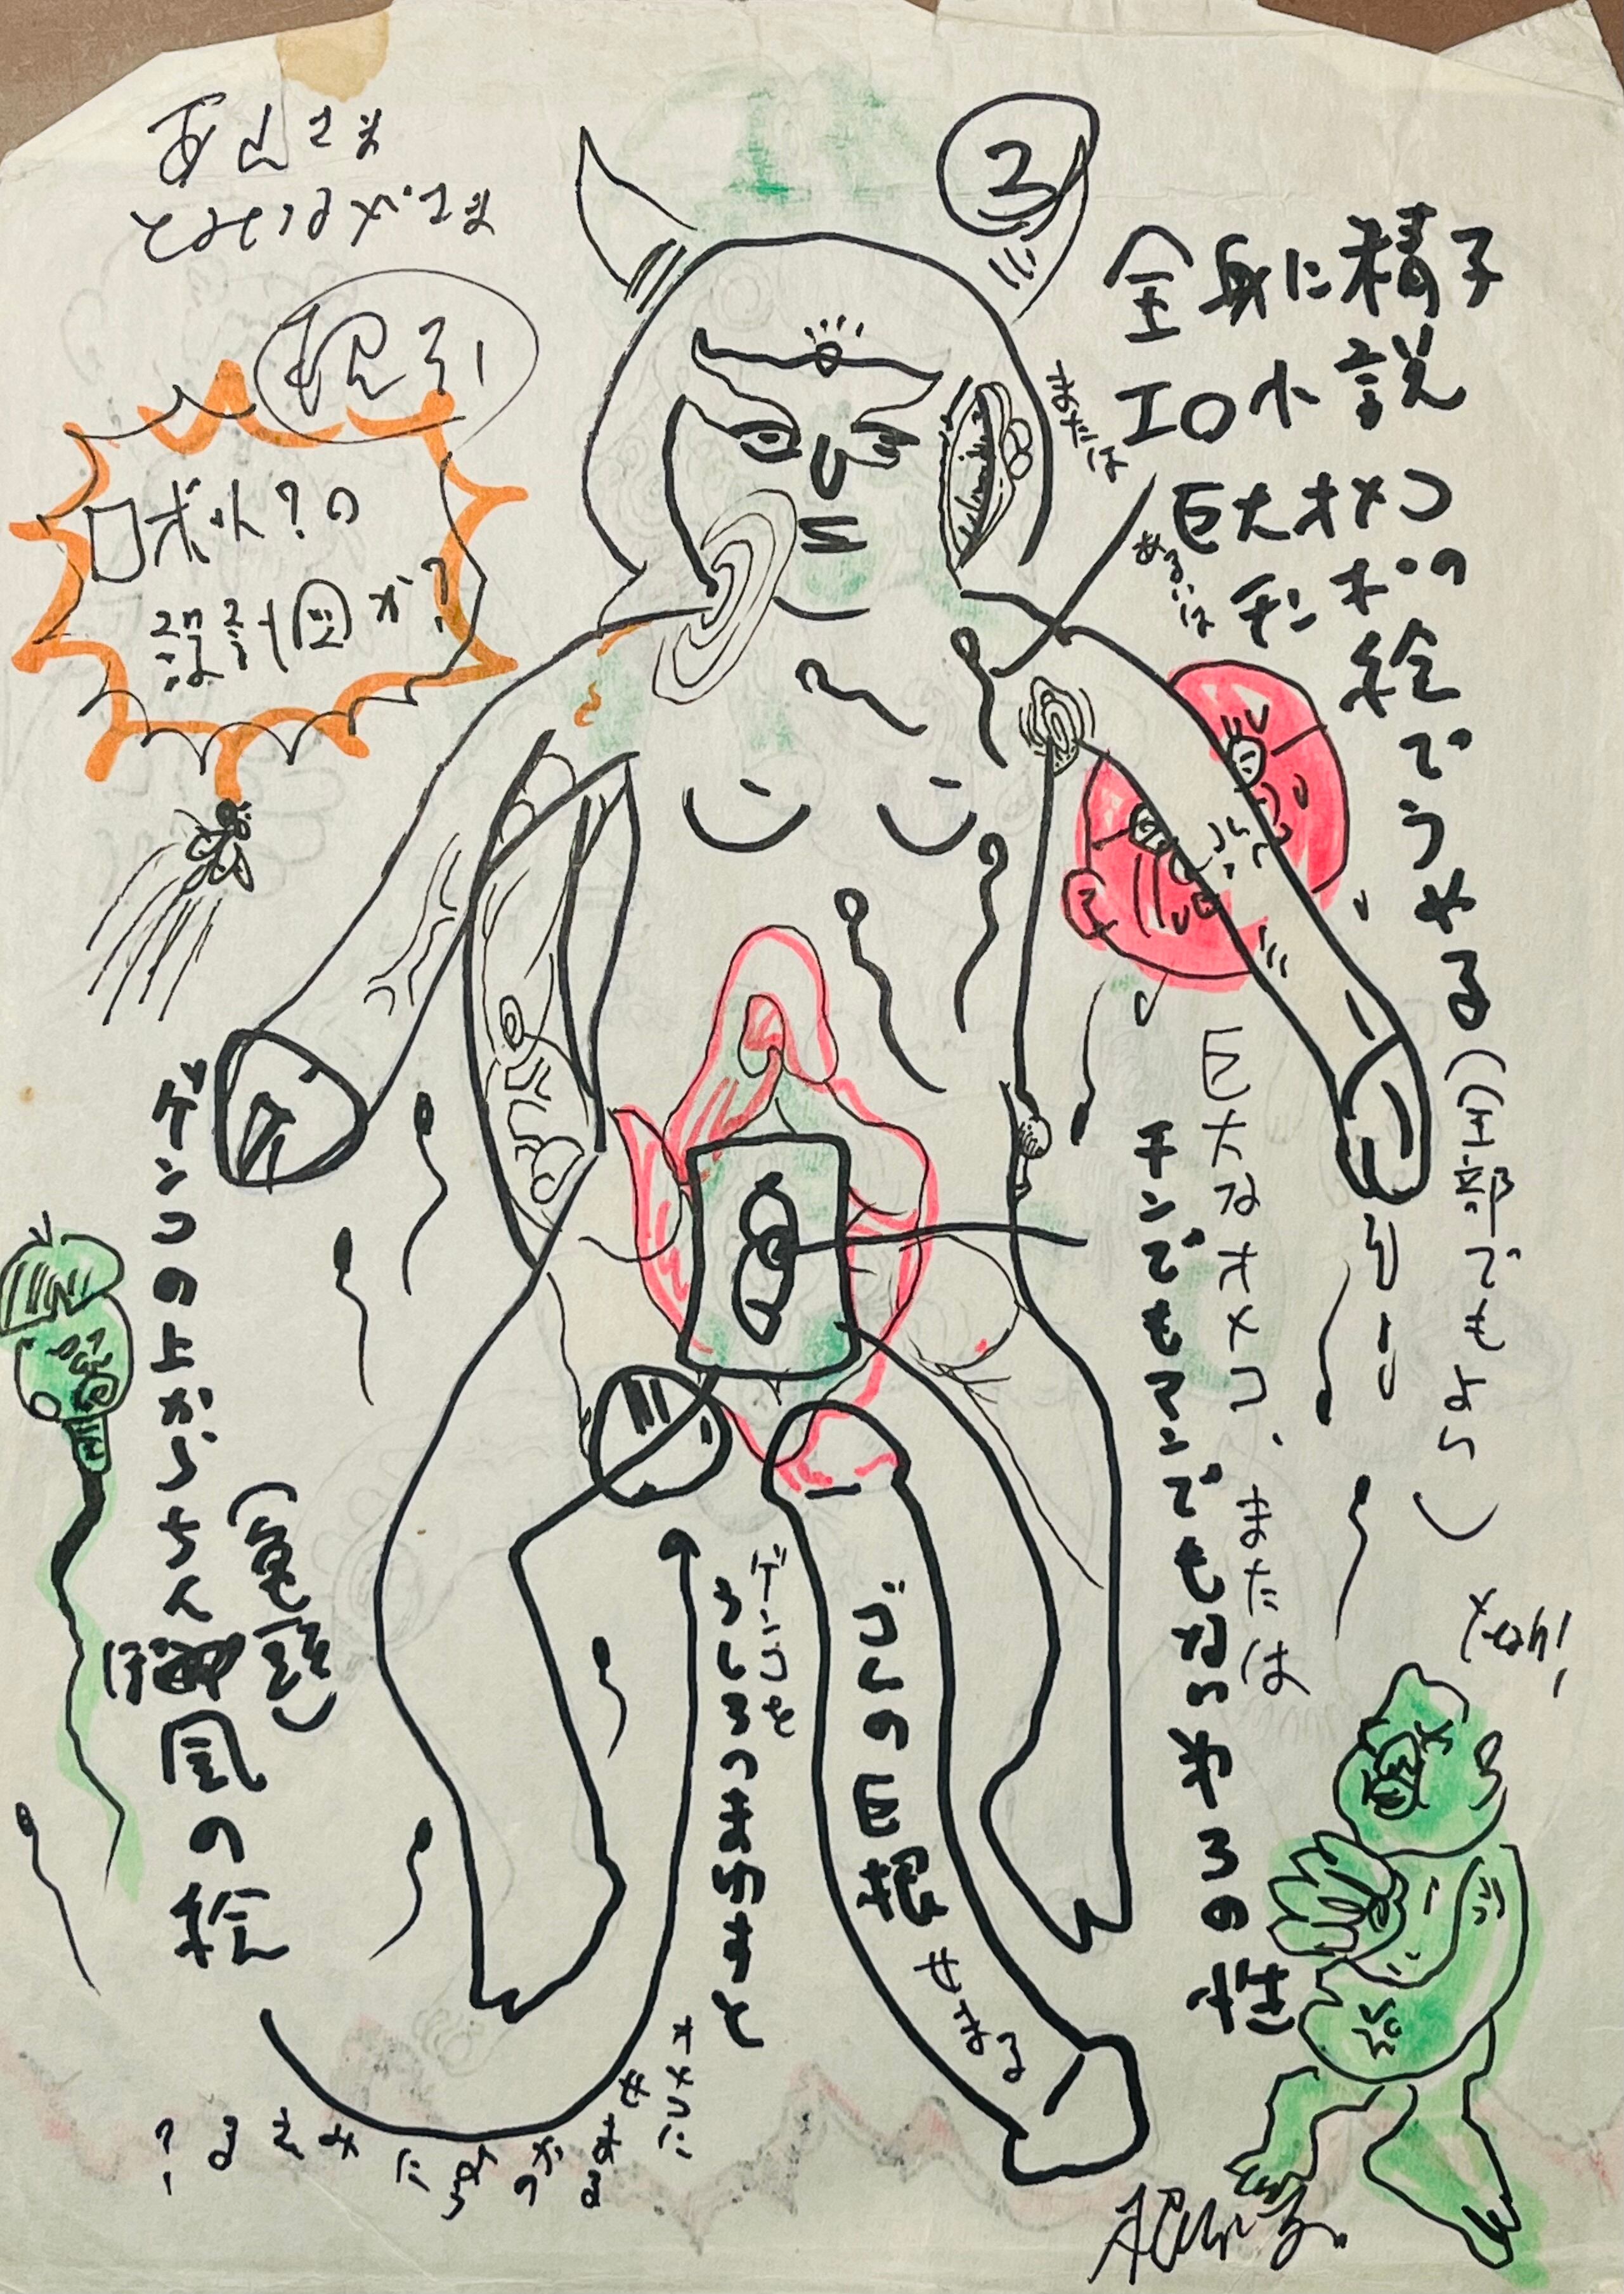 さま
さま
ロボット?の
設計図か?
③
全身に精子
エロ小説
または
巨大オメコ
あるいは
チンポの絵でうめる(全部でもよい)
巨大なオメコ、または
チンでもマンでもない第3の性
ゲンコの上からちん
(亀頭)
風の絵
ゲンコを
うしろにまわすと
オメコに
せまる
かのように
みえる
?
ゴムの巨根
せまる
Yeah!